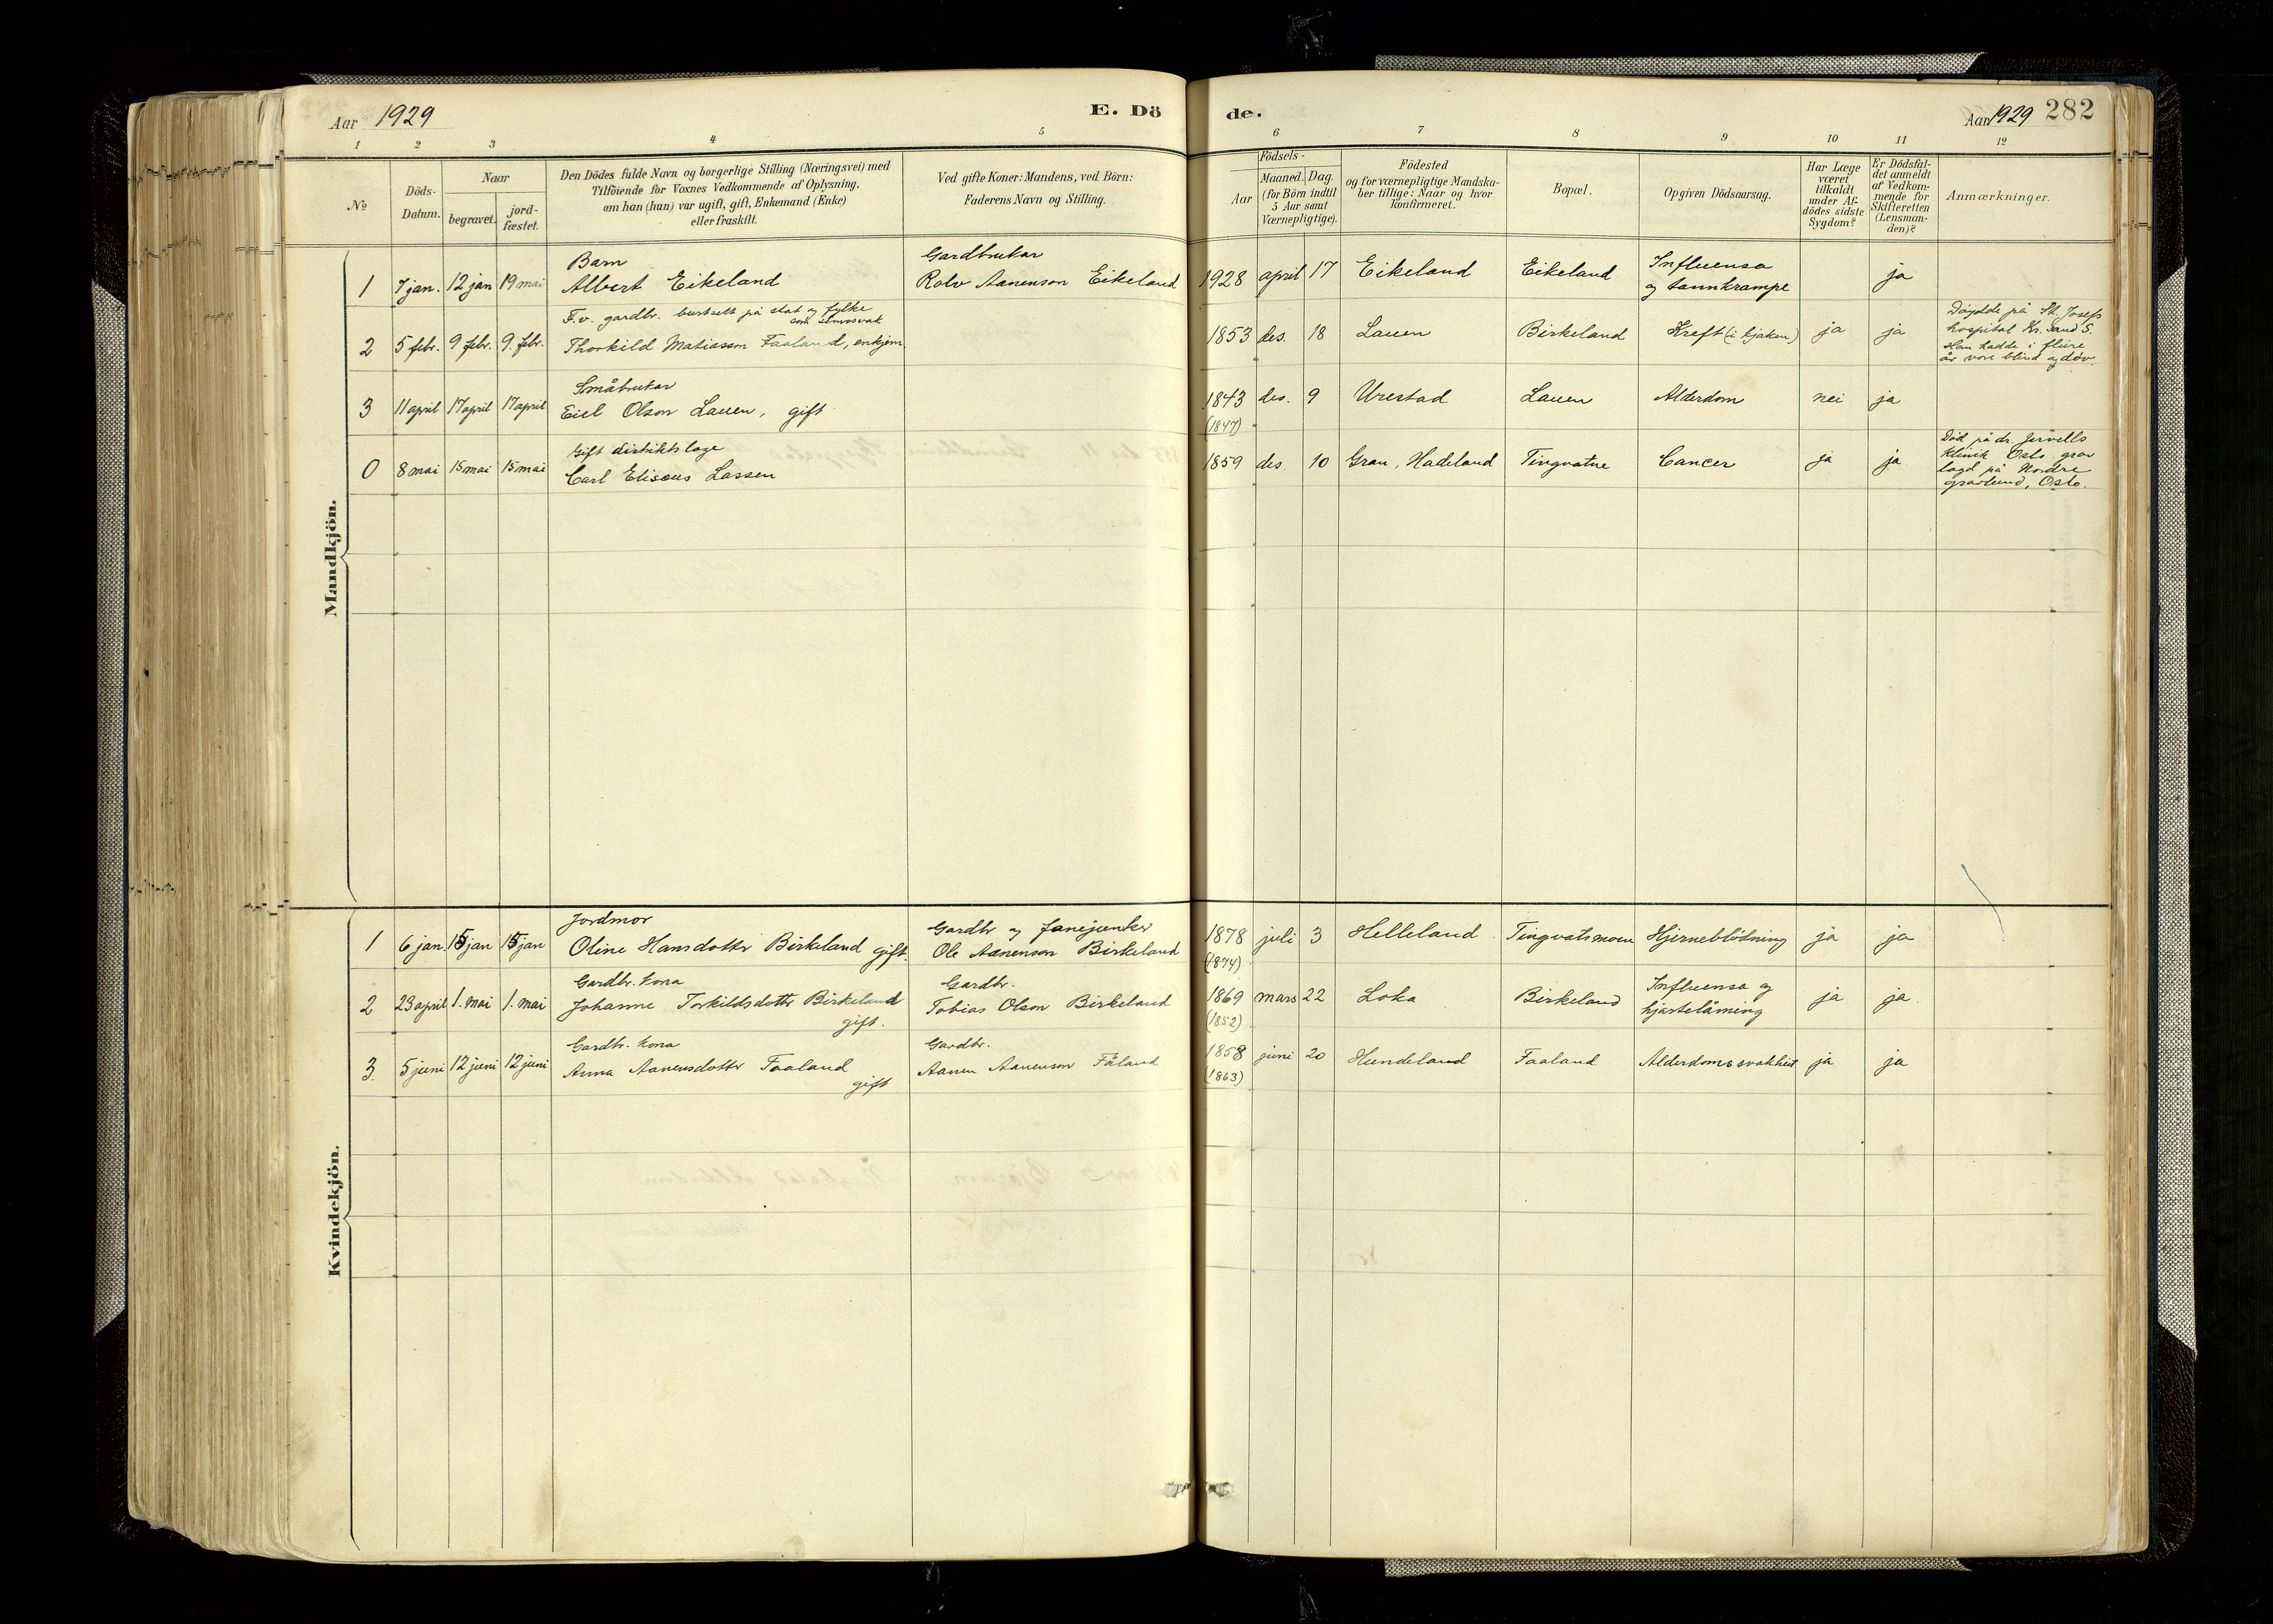 Aar 1929
E. Dö
de.
Aar 1929 282
1 2 3 4 5 6 7 8 9 10 11 12
No
Döds-
Datum.
Naar
begravet.
jord-
fæstet.
Den Dödes fulde Navn og borgerlige Stilling (Næringsvei) med
Tilföiende for Voxnes Vedkommende af Oplysning,
om han (hun) var ugift, gift, Enkemand (Enke)
eller fraskilt.
Ved gifte Koner: Mandens, ved Börn:
Faderens Navn og Stilling.
Födsels-
Aar
Maaned. Dag.
(for Börn indtil
5 Aar samt
Værnepligtige).
Födested
og for værnepligtige Mandska-
ber tillige: Naar og hvor
konfirmeret.
Bopæl.
Opgiven Dödsaarsag.
Har Læge
været
tilkaldt
under Af-
dödes sidste
Sygdom?
Er Dödsfal-
det anmeldt
af Vedkom-
mende for
Skifteretten
(Lensman-
den)?
Anmærkninger.
Mandkjön.
Barn
Gardbrukar
1 7 jan. 12 jan 19 mai Albert Eikeland Rolv Aanenson Eikeland 1928 april 17 Eikeland Eikeland Influensa
og tannkrampe ja
F.v. gardbr. burtsett på stat og fylke
som sinnssvak
2 5 febr. 9 febr. 9. febr. Thorkild Matiasson Faaland, enkjem 1853 des. 18 Lauen Birkeland Kreft (i kjaken) ja ja
Döydde på St. Josefs
hospital Kr.sand S.
Han hadde i fleire
år vore blind og döv.
Småbrukar
3 11 april 17 april 17 april Eiel Olson Lauen, gift 1843 des. 9 Urestad Lauen Alderdom nei ja
(1847)
Gift distriktslæge
0 8 mai 15 mai 15 mai Carl Elisæus Lassen 1859 des. 10 Gran, Hadeland Tingvatne Cancer ja ja
Död på dr. Jervells
klinik Oslo. grav
lagd på Nordre
gravlund, Oslo.
Kvindekjön.
Jordmor
Gardbr og fanejunker
1 6 jan. 15 jan 15 jan Oline Hansdottr Birkeland gift. Ole Aanenson Birkeland 1878 juli 3 Helleland Tingvatsmoen Hjerneblödning ja ja
(1874)
Gardbr. kona
Gardbr.
2 23 april 1. mai 1. mai Johanne Torkildsdottr Birkeland Tobias Olson Birkeland 1869 mars 22 Loka Birkeland Influensa og
hjartelåming ja ja
gift.
(1852)
Gardbr. kona
Gardbr.
3. 5 juni 12 juni 12 juni Anna Aanensdottr Faaland Aanen Aanenson Fåland 1858 juni 20 Hundeland Faaland Alderdomssvakheit ja ja
gift
(1863)